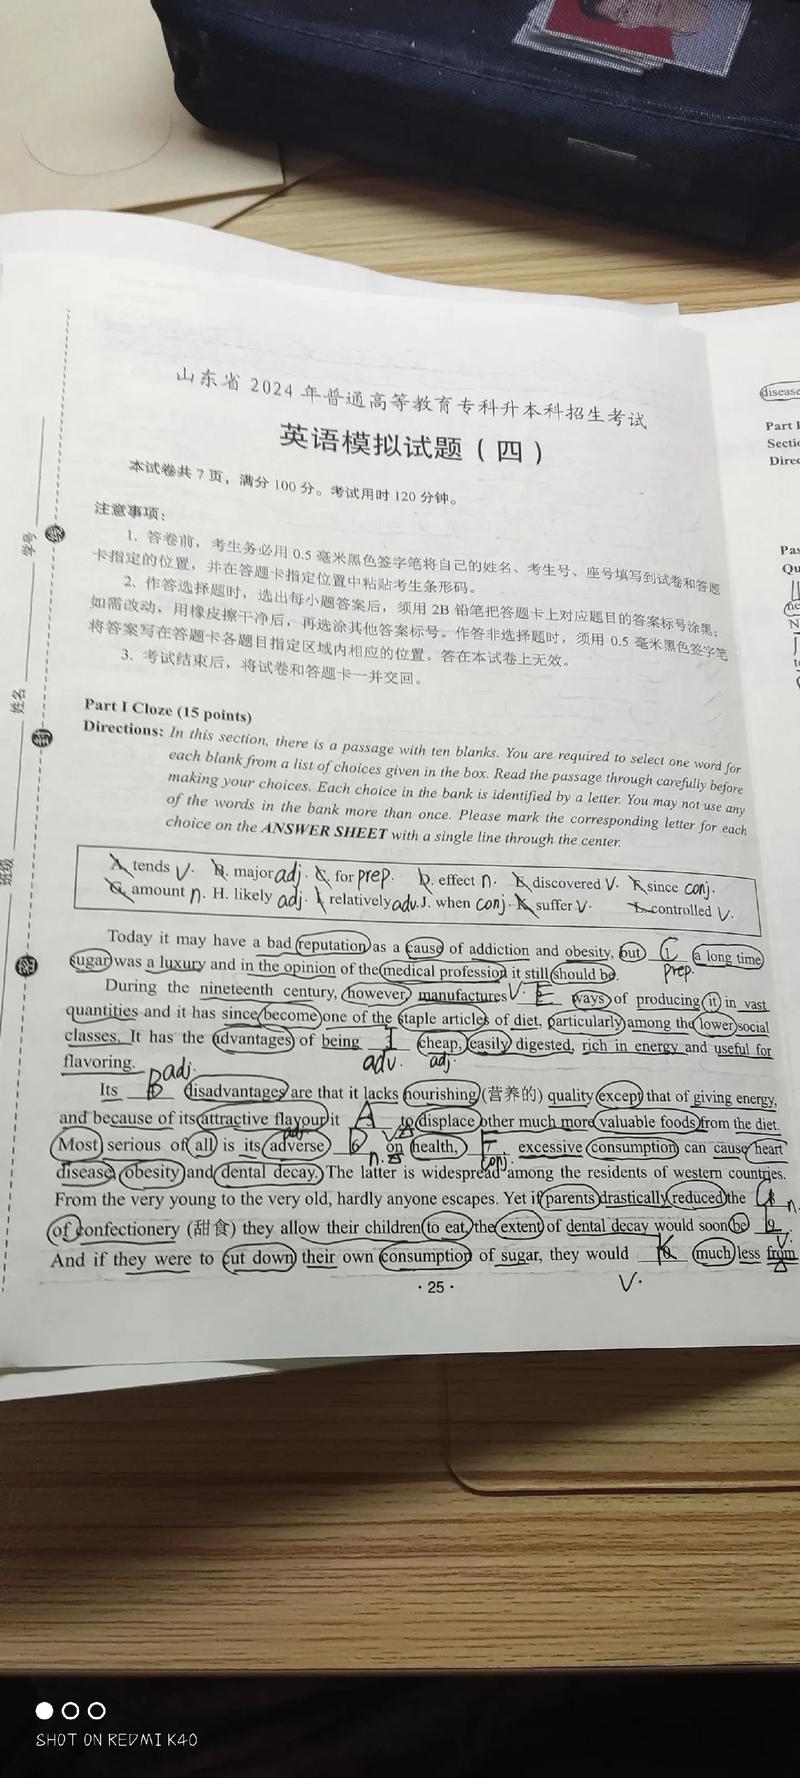 山东省 2024 年普通高等教育专科升本科招生考试
英语模拟试题(四)
本试卷共 7 页,满分 100 分。考试用时 120 分钟。
注意事项:
1. 答卷前,考生务必用 0.5 毫米黑色签字笔将自己的姓名、考生号、座号填写到试卷和答题
卡指定的位置,并在答题卡指定位置中粘贴考生条形码。
2. 作答选择题时,选出每小题答案后,须用 2B 铅笔把答题卡上对应题目的答案标号涂黑;
如需改动,用橡皮擦干净后,再选涂其他答案标号。作答非选择题时,须用 0.5 毫米黑色签字笔
将答案写在答题卡各题目指定区域内相应的位置。答在本试卷上无效。
3. 考试结束后,将试卷和答题卡一并交回。
学号
姓名
班级
Part I Cloze (15 points)
Directions: In this section, there is a passage with ten blanks. You are required to select one word for
each blank from a list of choices given in the box. Read the passage through carefully before
making your choices. Each choice in the bank is identified by a letter. You may not use any
of the words in the bank more than once. Please mark the corresponding letter for each
choice on the ANSWER SHEET with a single line through the center.
A. tends v. B. major adj. C. for prep. D. effect n. E. discovered v. F. since conj.
G. amount n. H. likely adj. I. relatively adv. J. when conj. K. suffer v. L. controlled v.
Today it may have a bad reputation as a cause of addiction and obesity, but C 1 a long time
prep.
sugar was a luxury and in the opinion of the medical profession it still should be.
During the nineteenth century, however, manufactures v. E ways of producing it in vast
quantities and it has since become one of the staple articles of diet, particularly among the lower social
classes. It has the advantages of being I cheap, easily digested, rich in energy and useful for
adv. adj.
flavoring.
Its B adj. disadvantages are that it lacks nourishing (营养的) quality except that of giving energy,
and because of its attractive flavour it A to displace other much more valuable foods from the diet.
Most serious of all is its adverse D on health, F excessive consumption can cause heart
n. conj.
disease, obesity and dental decay. The latter is widespread among the residents of western countries.
From the very young to the very old, hardly anyone escapes. Yet if parents drastically reduced the
n.
of confectionery (甜食) they allow their children to eat, the extent of dental decay would soon be
v.
And if they were to cut down their own consumption of sugar, they would K much less from
v.
· 25 ·
disease
Part I
SHOT ON REDMI K40